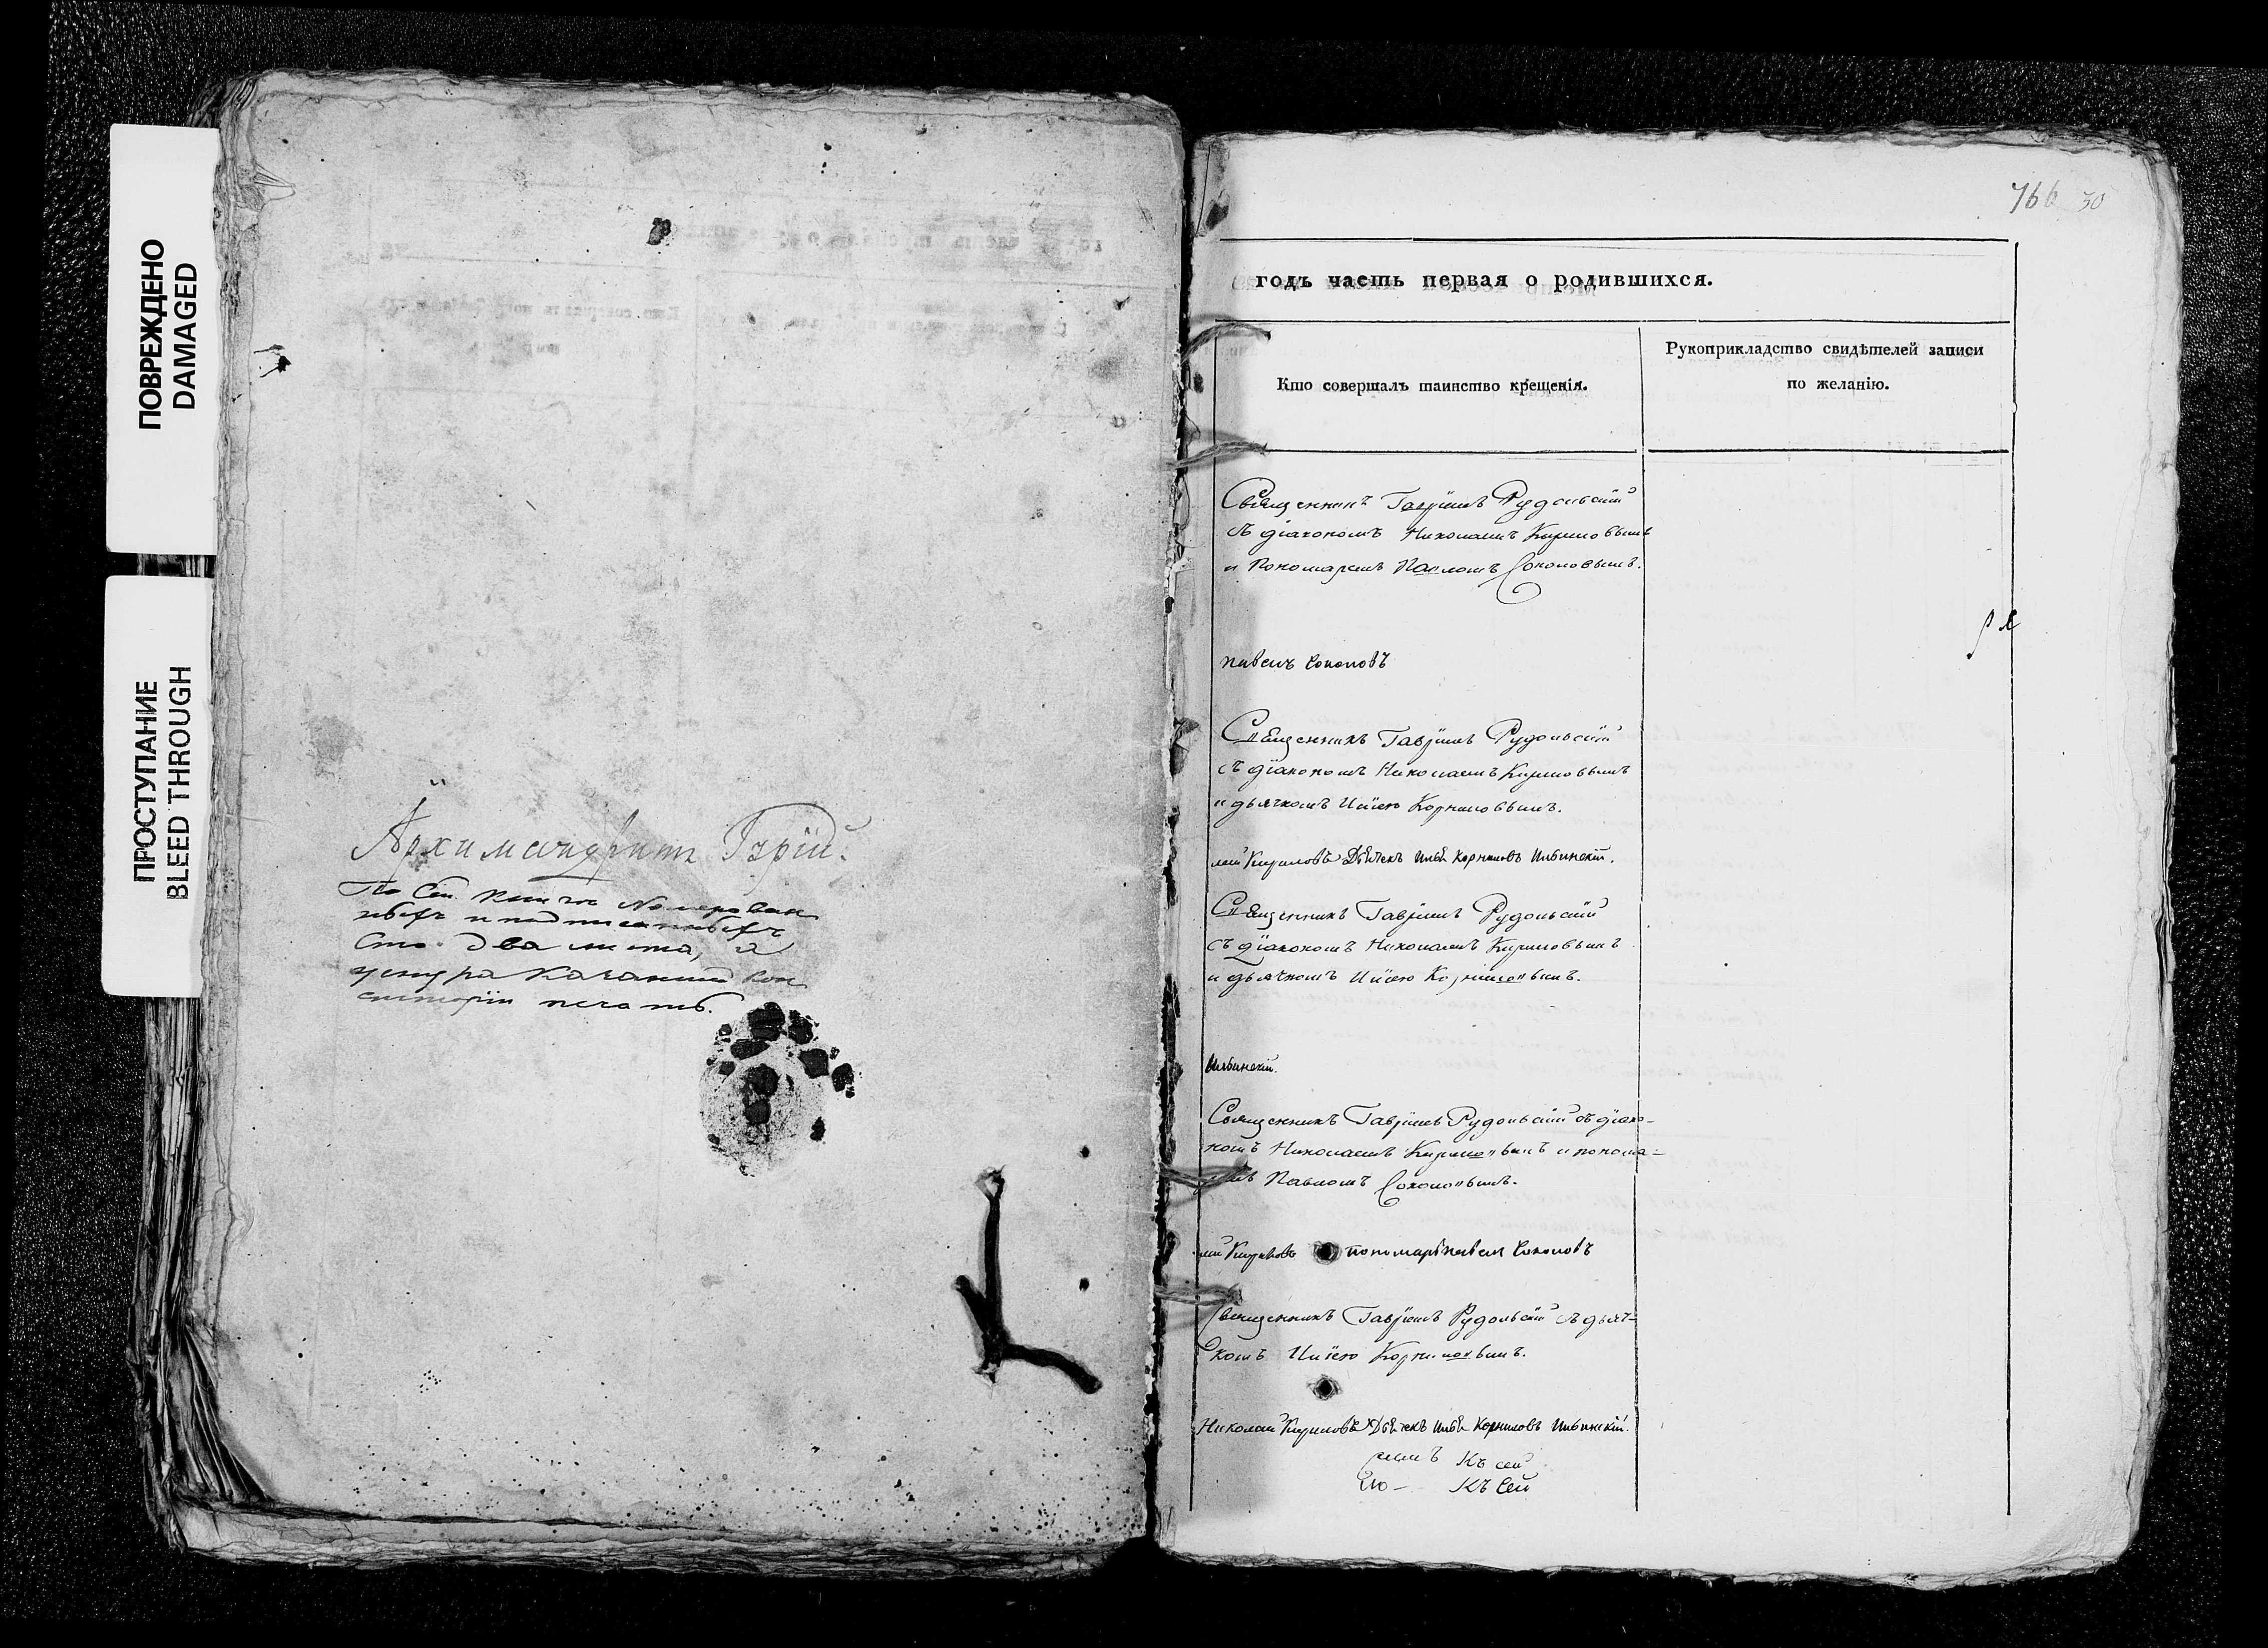 ПОВРЕЖДЕНО
DAMAGED
ПРОСТУПАНИЕ
BLEED THROUGH
Архимандритъ Гурій.
По сей книге номерован
ныхъ и подписанныхъ
сто два листа, а
у шнура Казанской кон
систоріи печать.
766 30
годъ часть первая о родившихся.
Кто совершалъ таинство крещенія.
Рукоприкладство свидѣтелей записи
по желанію.
Священникъ Гавріилъ Рудольскій
съ діакономъ Николаемъ Кириловымъ
и пономаремъ Павломъ Соколовымъ.
павелъ Соколовъ
Священникъ Гавріилъ Рудольскій
съ діакономъ Николаемъ Кириловымъ
и дьячкомъ Ильею Корниловымъ.
лай Кириловъ Дьячекъ Илья Корниловъ Ильинскій.
Священникъ Гавріилъ Рудольскій
съ діакономъ Николаемъ Кириловымъ
и дьячкомъ Ильею Корниловымъ.
Ильинскій.
Священникъ Гавріилъ Рудольскій съ діако-
номъ Николаемъ Кириловымъ и понома-
Павломъ Соколовымъ.
лай Кириловъ пономарь павелъ Соколовъ
Священникъ Гавріилъ Рудольскій съ дьяч-
комъ Ильею Корниловымъ.
Николай Кириловъ Дьячекъ Илья Корниловъ Ильинскій.
Къ сей
Къ Сей